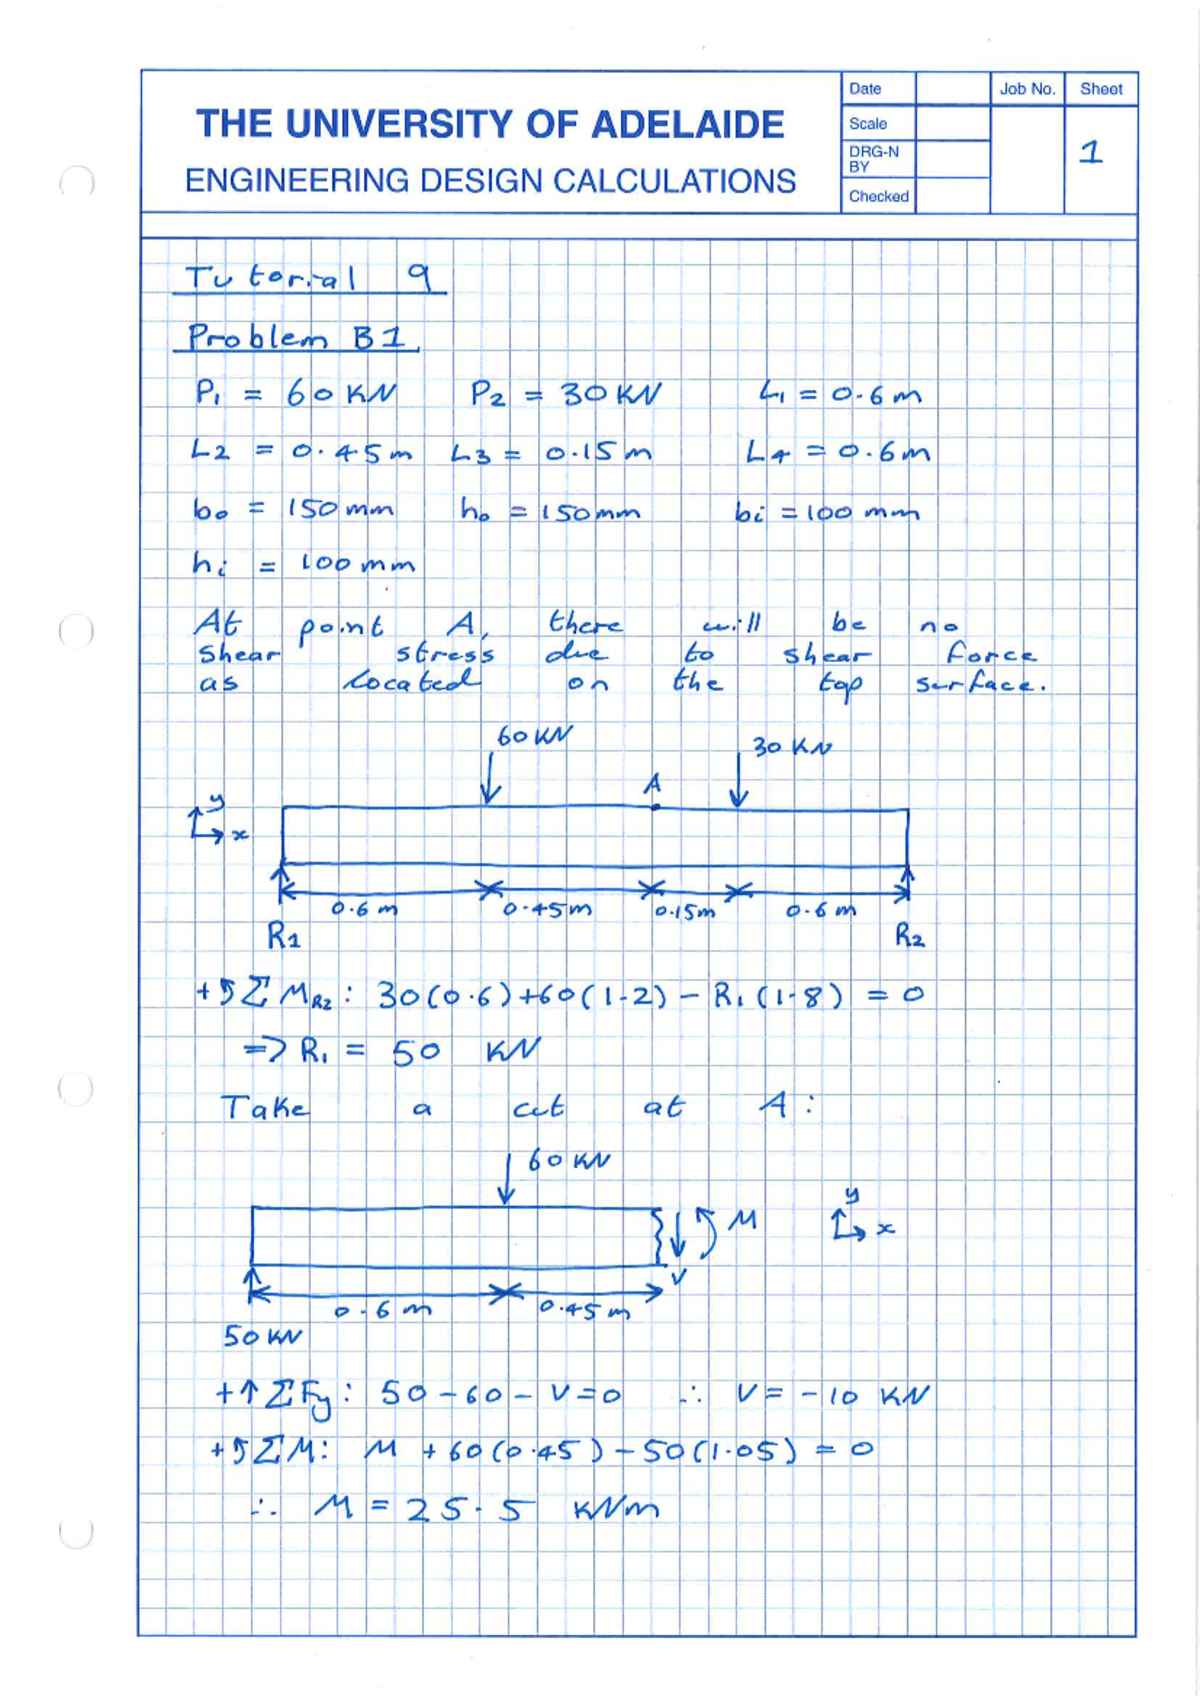 THE UNIVERSITY OF ADELAIDE
ENGINEERING DESIGN CALCULATIONS
Date
Scale
DRG-N BY
Checked
Job No.
Sheet
1
Tutorial 9
Problem B1
P₁ = 60 KN P₂ = 30 KN L₁ = 0.6 m
L₂ = 0.45 m L₃ = 0.15 m L₄ = 0.6 m
b₀ = 150 mm h₀ = 150 mm bi = 100 mm
hi = 100 mm
At point A, there will be no
shear stress due to shear force
as located on the top surface.
60 KN
30 KN
A
y
x
0.6 m 0.45 m 0.15 m 0.6 m
R₁ R₂
+↺ΣM_R₂: 30(0.6)+60(1.2) - R₁(1.8) = 0
=> R₁ = 50 KN
Take a cut at A:
60 KN
M
y
x
V
0.6 m 0.45 m
50 KN
+↑ΣFy: 50 - 60 - V = 0 ∴ V = -10 KN
+↺ΣM: M + 60(0.45) - 50(1.05) = 0
∴ M = 25.5 KNm